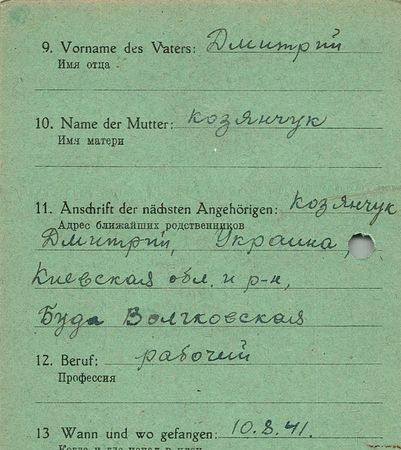 9. Vorname des Vaters: Дмитрий
Имя отца
10. Name der Mutter: козянчук
Имя матери
11. Anschrift der nächsten Angehörigen: козянчук
Адрес ближайших родственников
Дмитрий, Украина,
Киевская обл. и р-н,
Буда
12. Beruf: рабочий
Профессия
13 Wann und wo gefangen: 10.8.41.